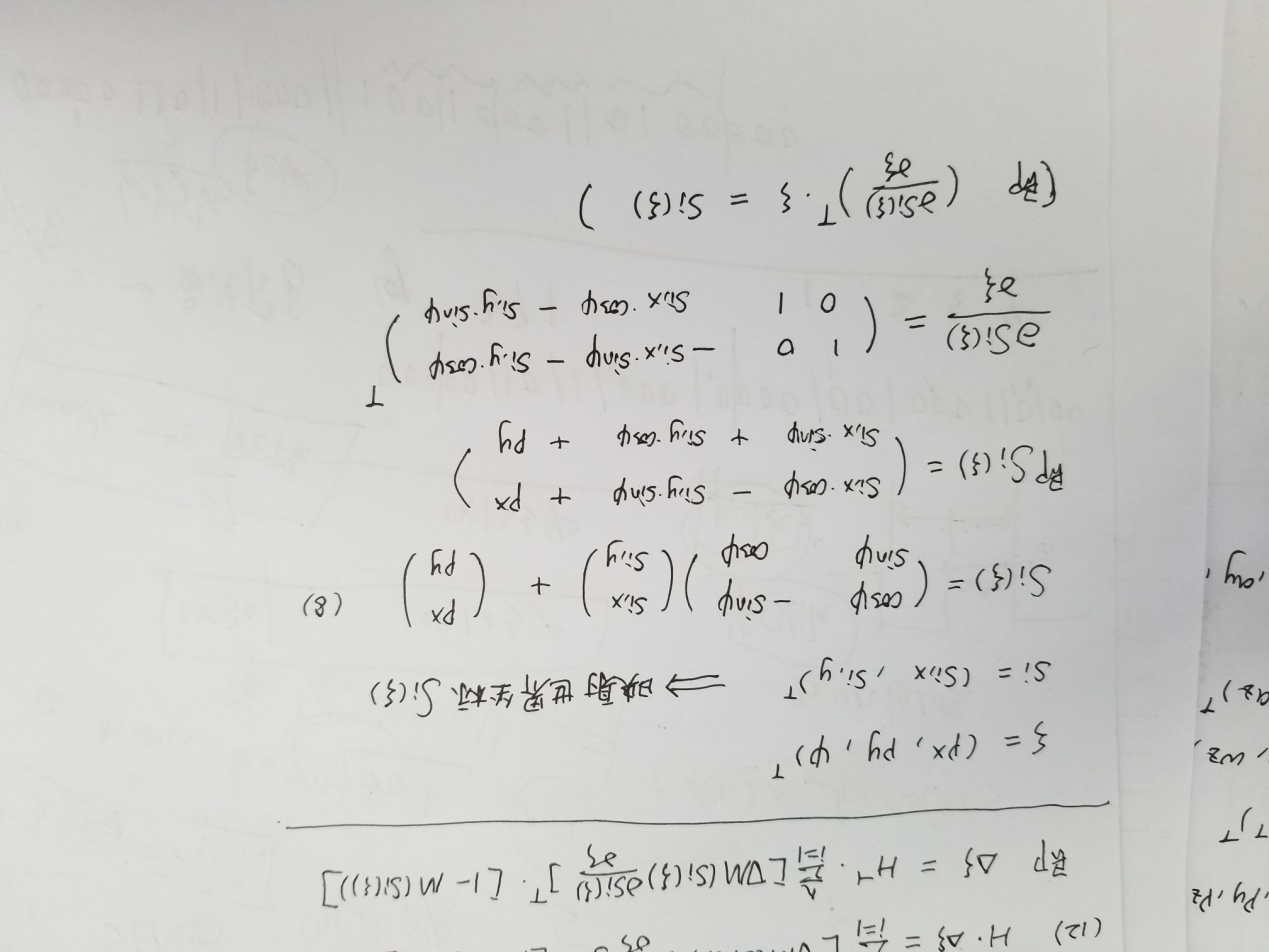 (12) H·Δξ =
即 Δξ = H⁻¹ · Σ_{i=1}^{n} [∇M(Si(ξ)) ∂Si(ξ)/∂ξ]ᵀ · [1 - M(Si(ξ))]
ξ = (px, py, φ)ᵀ
Si = (Si,x , Si,y)ᵀ ⟹ 映射世界坐标 Si(ξ)
Si(ξ) = ( cosφ -sinφ ; sinφ cosφ ) ( Si,x ; Si,y ) + ( px ; py ) (8)
即 Si(ξ) = ( Si,x·cosφ - Si,y·sinφ + px ; Si,x·sinφ + Si,y·cosφ + py )
∂Si(ξ)/∂ξ = ( 1 0 -Si,x·sinφ - Si,y·cosφ ; 0 1 Si,x·cosφ - Si,y·sinφ )ᵀ
(即 (∂Si(ξ)/∂ξ)ᵀ·ξ = Si(ξ) )
, Py, Pz
T)ᵀ
, wz
az)ᵀ
, ay,